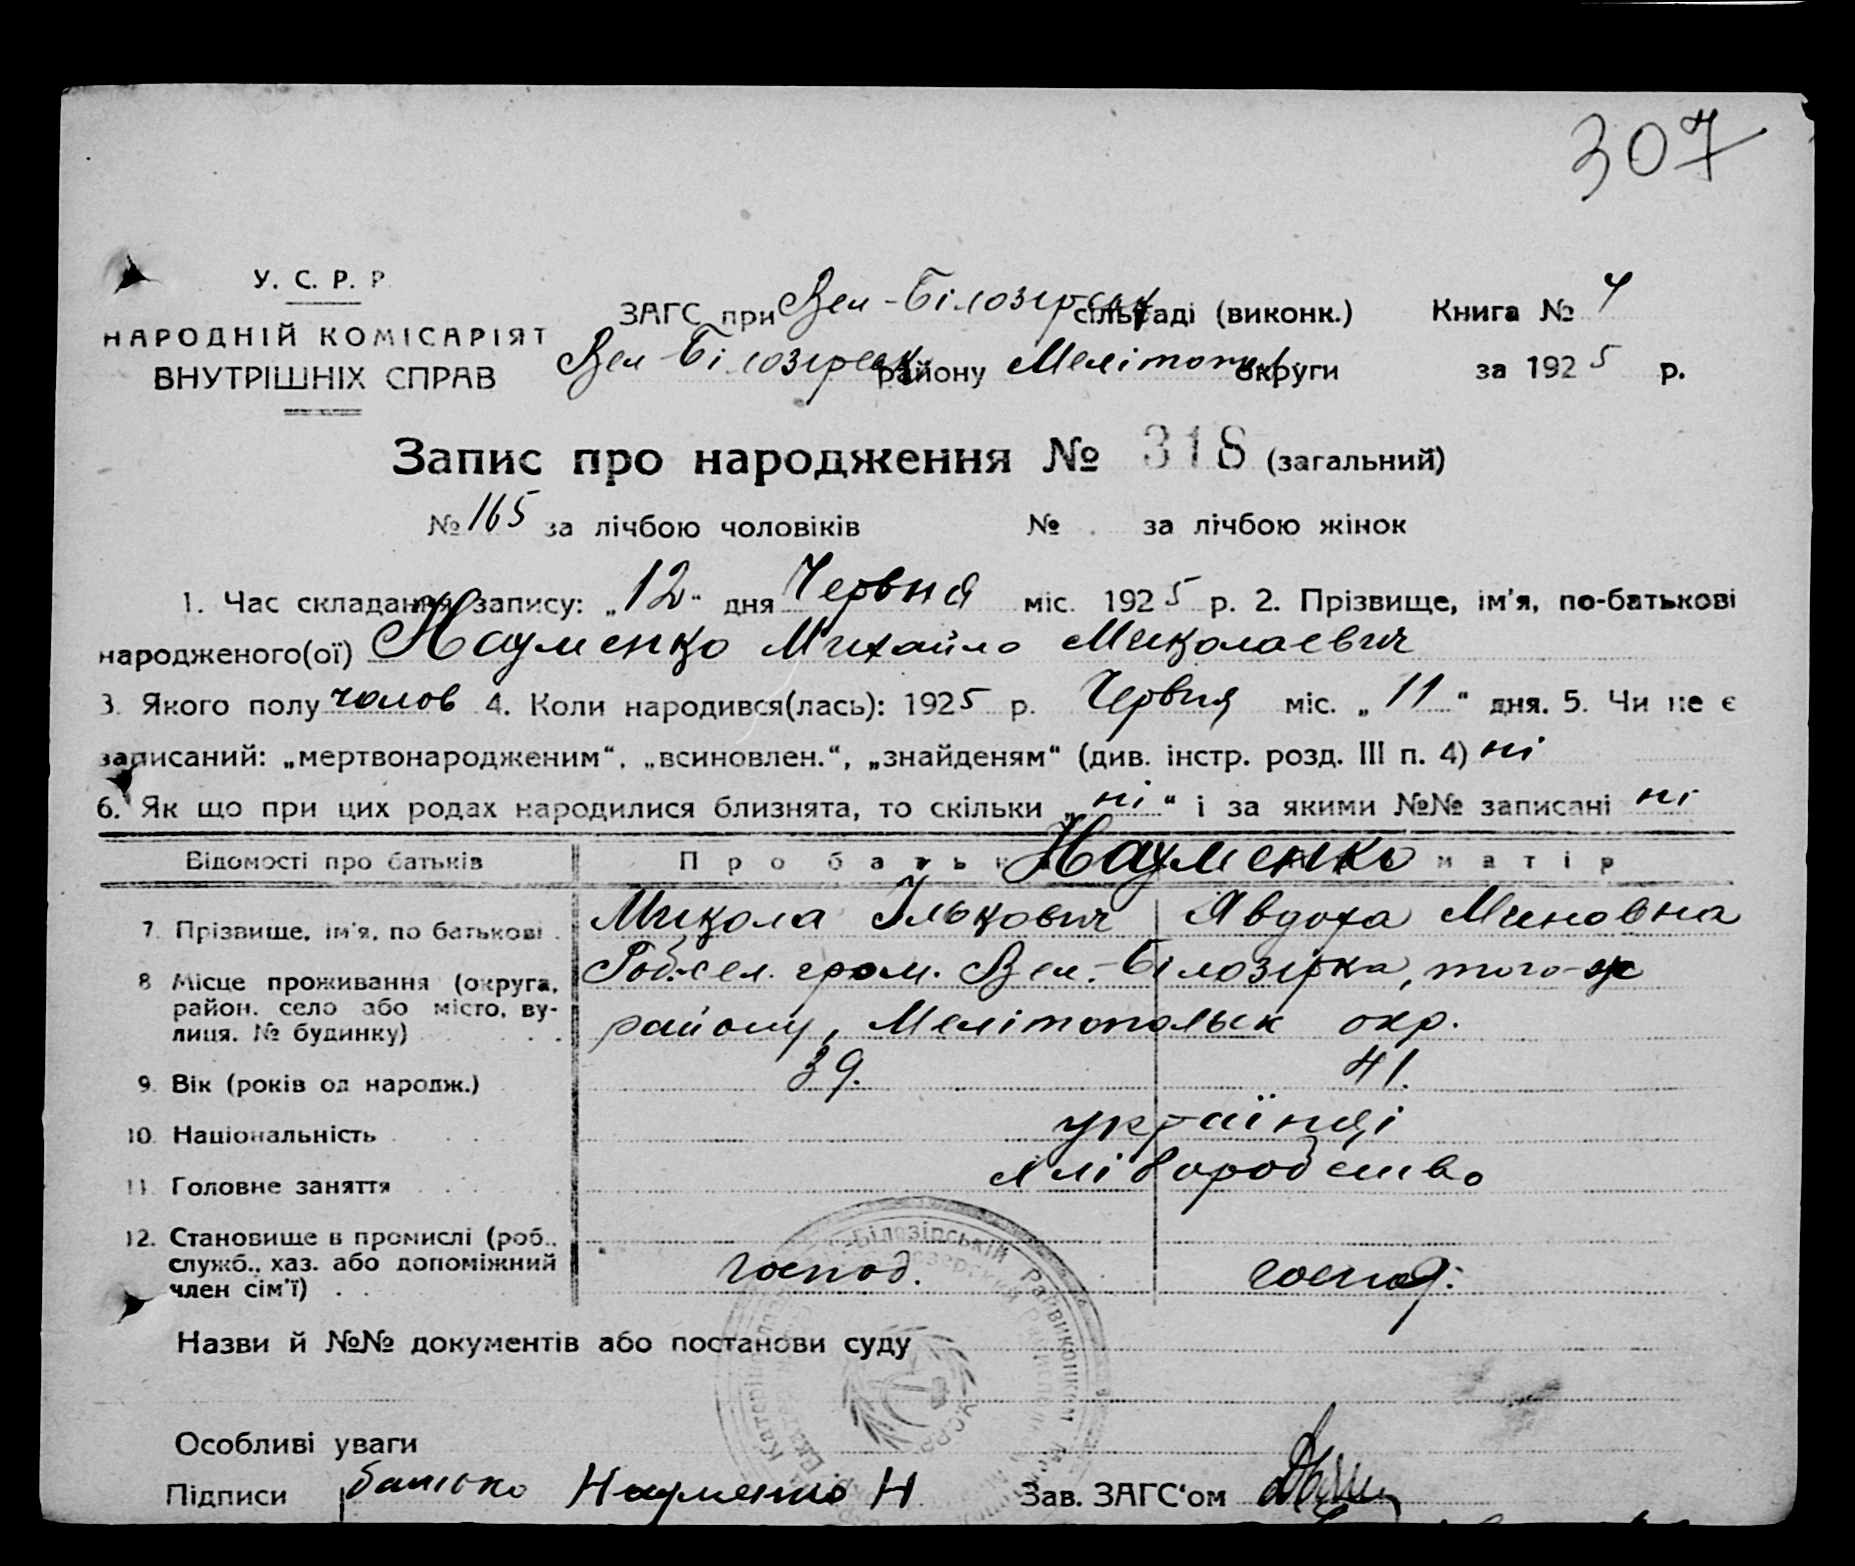 307
У. С. Р. Р.
НАРОДНІЙ КОМІСАРІЯТ
ВНУТРІШНІХ СПРАВ
ЗАГС при Вел-Білозірськ сільраді (виконк.) Книга № 4
Вел-Білозірськ району Мелітопол округи за 1925 р.
Запис про народження № 318 (загальний)
№ 165 за лічбою чоловіків № за лічбою жінок
1. Час складання запису: „12“ дня Червня міс. 1925 р. 2. Прізвище, ім'я, по-батькові
народженого(ої) Науменко Михайло Миколаевич
3. Якого полу чолов 4. Коли народився(лась): 1925 р. Червня міс. „11“ дня. 5. Чи не є
записаний: „мертвонародженим“, „всиновлен.“, „знайденям“ (див. інстр. розд. III п. 4) ні
6. Як що при цих родах народилися близнята, то скільки „ні“ і за якими №№ записані ні
Відомості про батьків Про батька Науменко матір
7. Прізвище, ім'я, по батькові Микола Ількович Явдоха Миновна
8 Місце проживання (округа, район, село або місто, вулиця, № будинку) гром. Вел.-Білозірка, того-ж
району, Мелітопольськ окр.
9. Вік (років од народж.) 39. 41.
10. Національність українці
11. Головне заняття хліборобство
12. Становище в промислі (роб., служб., хаз. або допоміжний член сім'ї) господ. господ.
Назви й №№ документів або постанови суду
Особливі уваги
Підписи батько Науменко Н Зав. ЗАГС'ом